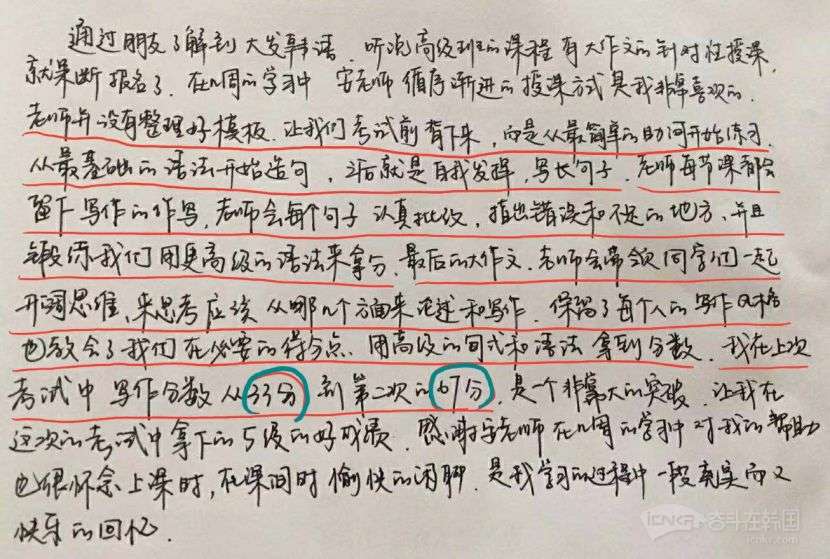 通过朋友了解到大发韩语,听说高级班的课程有大作文的针对性授课,
就果断报名了。在几周的学习中 安老师循序渐进的授课方式是我非常喜欢的.
老师并没有整理好模板.让我们考试前背下来,而是从最简单的助词开始练习.
从最基础的语法开始造句,之后就是自我发挥,写长句子.老师每节课都会
留下写作的作写,老师会每个句子认真批改,指出错误和不足的地方.并且
锻炼我们用更高级的语法来拿分.最后的大作文.老师会带领同学们一起
开阔思维,来思考应该从哪几个方面来论述和写作.保留了每个人的写作风格
也教会了我们在必要的得分点.用高级的句式和语法拿到分数.我在上次
考试中写作分数从33分到第二次的67分.是一个非常大的突破.让我在
这次的考试中拿下的5级的好成绩.感谢安老师在几周的学习中对我的帮助
也很怀念上课时,在课间时愉快的闲聊.是我学习的过程中一段充实而又
快乐的回忆.
iCNKR 奋斗在韩国
icnkr.com